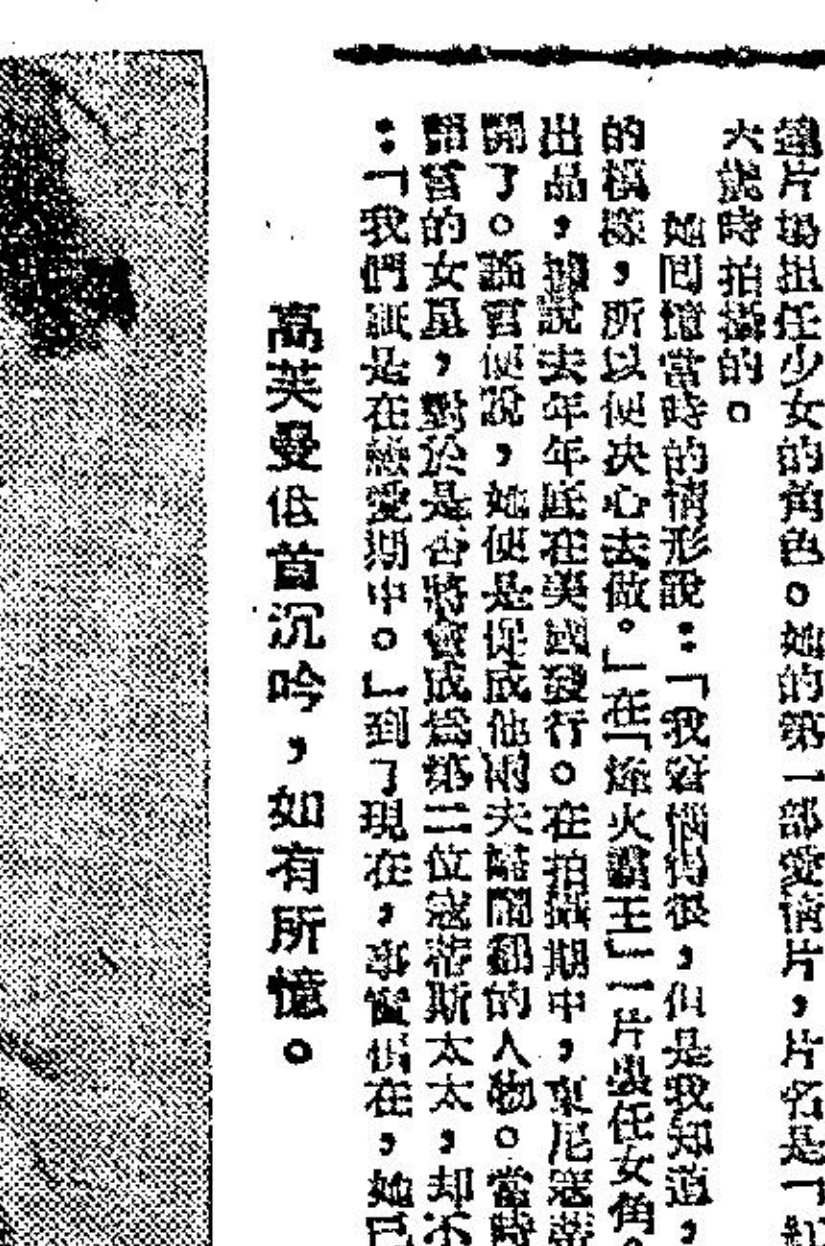 達片場担任少女的角色。她的第一部愛情片,片名是「紅
六歲時拍攝的。
她回憶當時的情形說:「我窘惱得很,但是我知道,
的模樣,所以便決心去做。」在「烽火霸王」一片裏任女角。
出品,據說去年年底在美國發行。在拍攝期中,東尼寇蒂
開了。謠言便說,她便是促成他兩夫婦鬧翻的人物。當時
的女星,對於是否將會成為第二位寇蒂斯太太,却不
:「我們祇是在戀愛期中。」到了現在,事實俱在,她已
高芙曼低首沉吟,如有所憶。